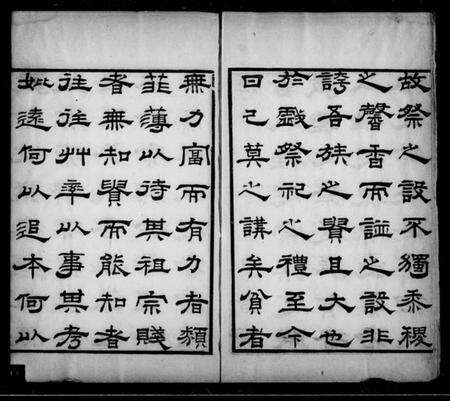 故祭之設不獨黍稷
之馨香而諡之設非
誇吾族之貴且大也
於戲祭祀之禮至今
日已莫之講矣貧者
無力富而有力者類
菲薄以待其祖宗賤
者無知貴而能知者
往往艸率以事其考
妣遠何以追本何以